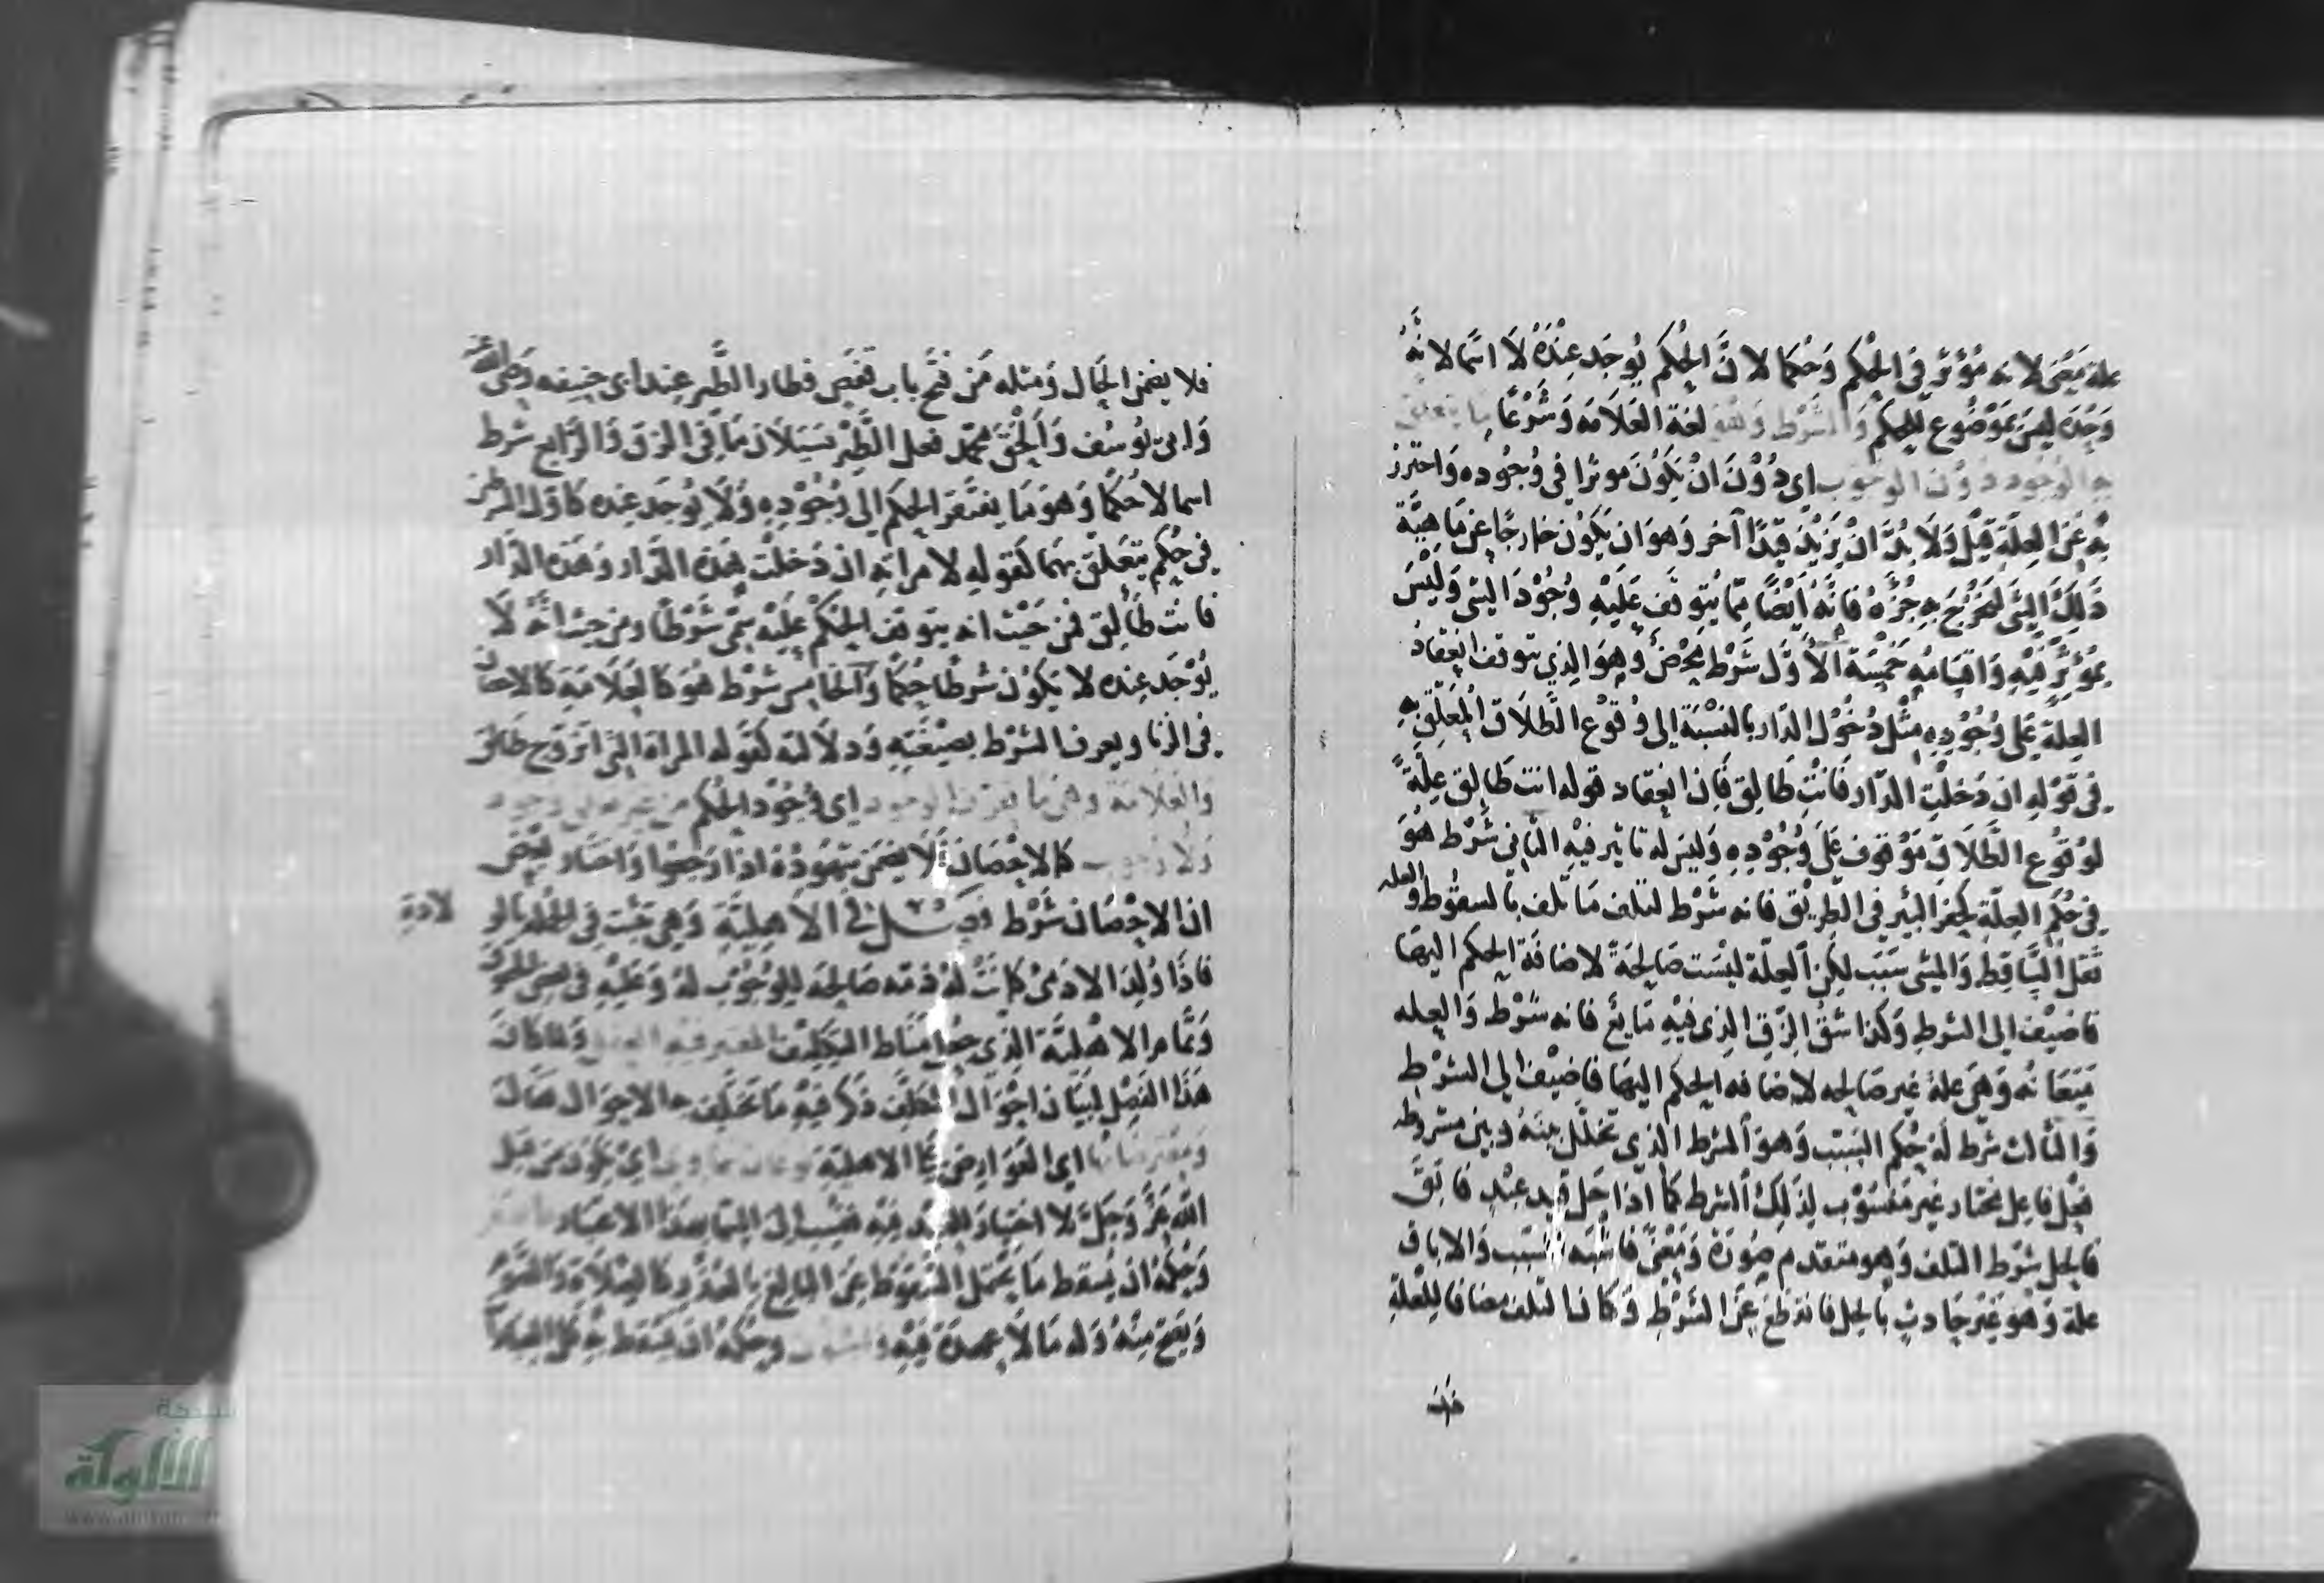 علة معنى لانه مؤثر في الحكم وحكما لان الحكم يوجد عنده لا اسما لانه
وحده ليس بموضوع للحكم والشرط وهو لغة العلامة وشرعا ما يتعلق
به الوجود دون الوجوب اي دون ان يكون موثرا في وجوده واحترز
به عن العلة قيل ولا بد ان يزيد قيدا آخر وهو ان يكون خارجا عن ماهية
ذلك الشي ليخرج به جزءه فانه ايضا مما يتوقف عليه وجود الشي وليس
بمؤثر فيه واقسامه خمسة الاول شرط محض وهو الذي يتوقف انعقاد
العلة على وجوده مثل دخول الدار بالنسبة الى وقوع الطلاق المعلق به
في قوله ان دخلت الدار فانت طالق فان انعقاد قوله انت طالق علة
لوقوع الطلاق موقوف على وجوده وليس له تاثير فيه الثاني شرط هو
في حكم العلة كحفر البير في الطريق فانه شرط لتلف ما تلف بالسقوط والعله
ثقل الساقط والمشي سبب لكن العلة ليست صالحة لاضافة الحكم اليها
فاضيف الى الشرط وكذا شق الزق الذي فيه مايع فانه شرط والعله
ميعانه وهي علة غير صالحه لاضافه الحكم اليها فاضيف الى الشرط
والثالث شرط له حكم السبب وهو الشرط الذي تخلل بينه وبين مشروطه
فعل فاعل مختار غير منسوب لذلك الشرط كما اذا حل قيد عبد فابق
فالحل شرط التلف وهو متقدم صورة ومعنى فاشبه السبب والاباق
علة وهو غير حادث بالحل فانقطع عن الشرط وكان التلف مضافا للعلة
فلا يضمن الحال ومثله من فتح باب قفص فطار الطير عند ابي حنيفه رضي الله عنه
وابي يوسف والحق محمد فعل الطير بسيلان ما في الزق والرابع شرط
اسما لا حكما وهو ما يفتقر الحكم الى وجوده ولا يوجد عنده كاول الشرطين
في حكم يتعلق بهما كقوله لامراته ان دخلت هذه الدار وهذه الدار
فانت طالق فمن حيث انه يتوقف الحكم عليه سمي شرطا ومن حيث انه لا
يوجد عنده لا يكون شرطا حكما والخامس شرط هو كالعلامة كالاحصان
في الزنا ويعرف الشرط بصيغته ودلالته كقوله المراة التي اتزوج طالق
والعلامة وهي ما يعرف الوجود اي وجود الحكم من غير تعلق وجود
ولا وجوب كالاحصان فلا يضمن شهوده اذا رجعوا واختار بعض
ان الاحصان شرط فصل في الاهلية وهي تثبت في الجملة بالولادة
فاذا ولد الادمي كانت له ذمه صالحه للوجوب له وعليه
وتمام الاهلية الذي جعل مناط التكليف المعتبر فيه العقل ولما كان
هذا الفصل لبيان احوال المكلف ذكر فيه ما تختلف به الاحوال هنالك
اي العوارض على الاهلية نوعان سماوي اي يكون من قبل
الله عز وجل لا اختيار للعبد فيه فنسب الى السما بهذا الاعتبار
وحكمه ان يسقط ما يحتمل السقوط عن البالغ بالعذر كالصلاة والصوم
ويصح منه وله ما لا عهدة فيه وحكمه ان يسقط به